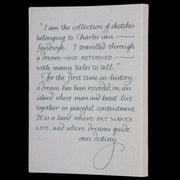 "I am the collection of sketches
belonging to Charles van
Sandwyk. I travelled through
a dream — AND RETURNED —
with many tales to tell."
"For the first time in history,
a dream has been recorded, on an
island where man and beast live
together in peaceful contentment.
It is a land where ART MAKES
LIFE, and where dreams guide
ones destiny.